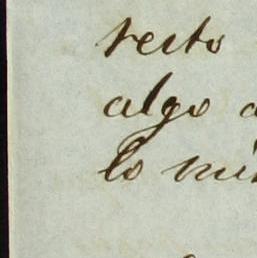 resto
algo a
lo mi